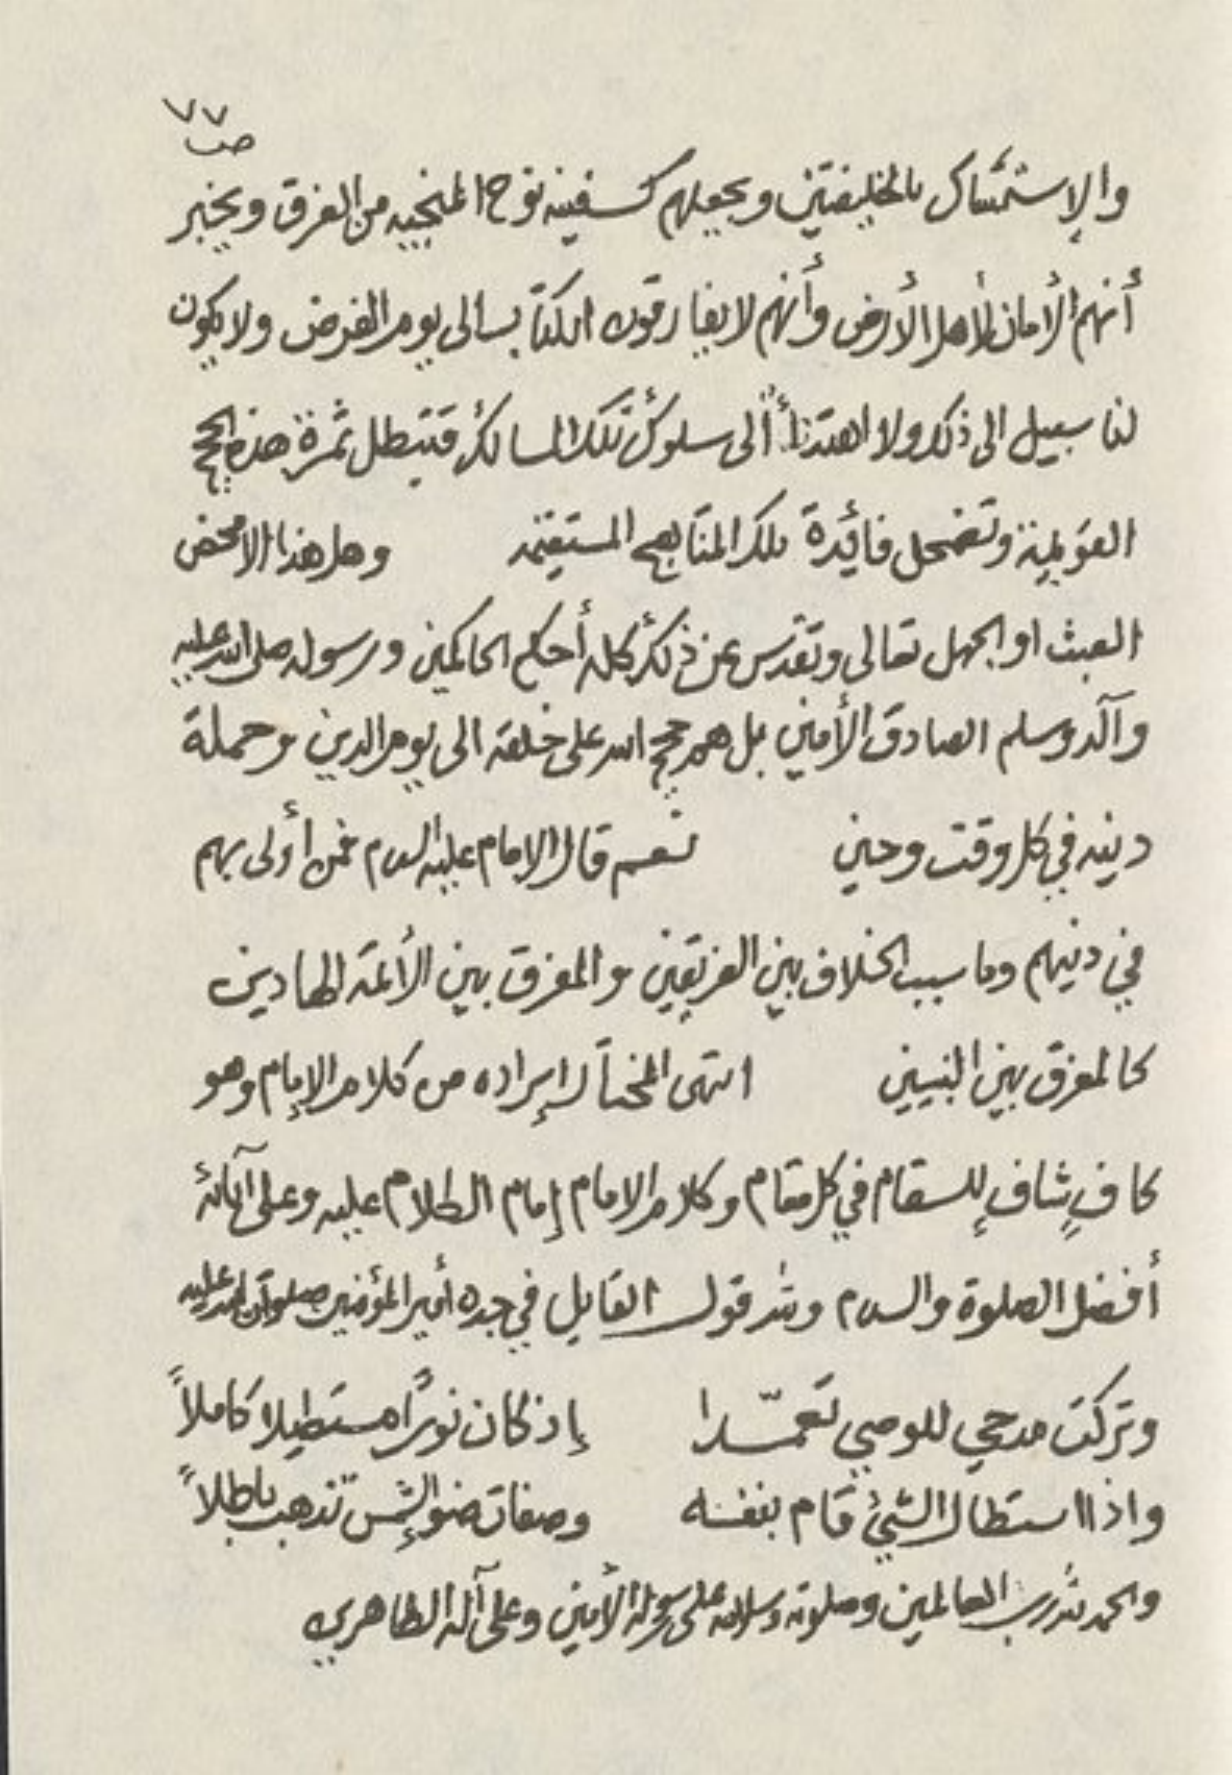 ٧٧
ص
والإستمساك بالخليفتين ويجعلهم كسفينه نوح المنجيه من الغرق ويخبر
أنهم الأمان لأهل الأرض وأنهم لا يفارقون الكتاب الى يوم العرض ولا يكون
لنا سبيل الى ذلك ولا اهتدأ ألى سلوك تلك المسالك فتبطل ثمرة هذه الحجج
القويمية وتضمحل فائدة تلك المناهج المستقيمه وهل هذا الا محض
العبث او الجهل تعالى وتقدس عن ذلك كله أحكم الحاكمين ورسوله صلى الله عليه
وآله وسلم الصادق الأمين بل هم حجج الله على خلقه الى يوم الدين وحملة
دينه في كل وقت وحين ثم قال الامام عليه السلام فمن أولى بهم
في دينهم وما سبب الخلاف بين الفريقين والمفرق بين الأئمة الهادين
كالمفرق بين النبيين انتهى المختار إيراده من كلام الإمام وهو
كافٍ شافٍ للسقام في كل مقام وكلام الامام إمام الكلام عليه وعلى آبائه
أفضل الصلوة والسلام ولله قول القايل في جده أمير المؤمنين صلوات الله عليه
وتركت مدحي للوصي تعمّدا إذ كان نورًا مستطيلا كاملاً
واذا استطال الشيئ قام بنفسه وصفات ضوالشمس تذهب باطلاً
والحمد لله رب العالمين وصلوته وسلامه على رسوله الأمين وعلى آله الطاهرين